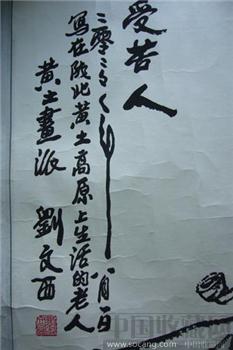 受苦人
二零
年八月一日
写在陕北黄土高原上生活的老人
黄土畫派 劉文西
中国收藏网
www.socang.com